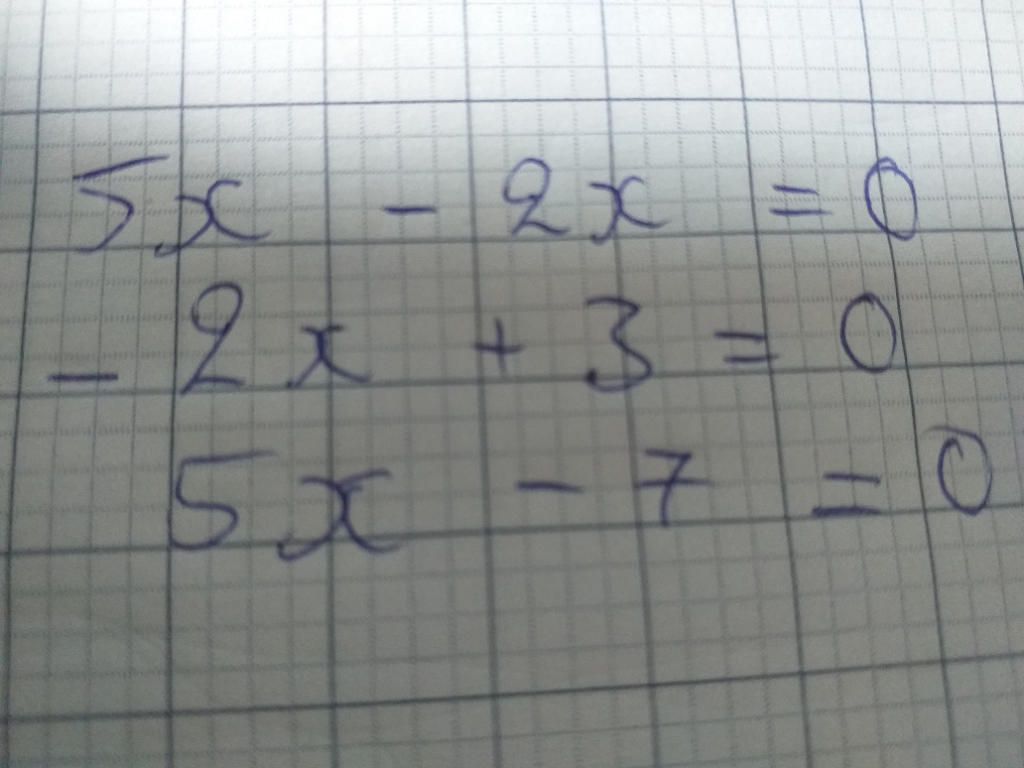 5x - 2x = 0
- 2x + 3 = 0
5x - 7 = 0